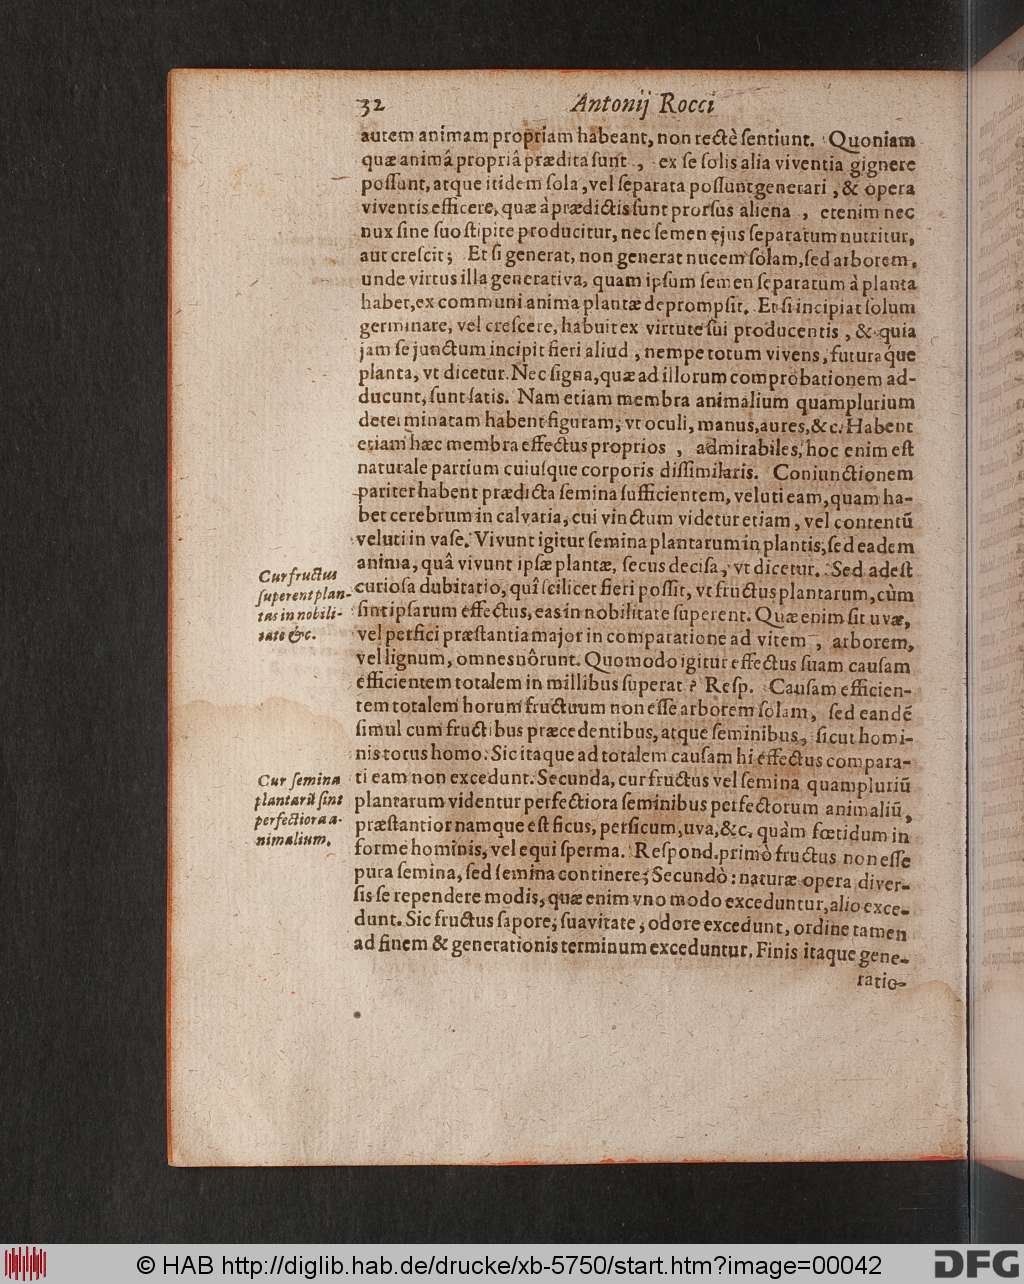 32 Antonij Rocci
autem animam propriam habeant, non rectè ſentiunt. Quoniam
quæ animâ propriâ prædita ſunt, ex ſe ſolis alia viventia gignere
poſſunt, atque itidem ſola, vel ſeparata poſſunt generari, & opera
viventis efficere, quæ à prædictis ſunt prorſus aliena, etenim nec
nux ſine ſuo ſtipite producitur, nec ſemen ejus ſeparatum nutritur,
aut creſcit; Et ſi generat, non generat nucem ſolam, ſed arborem,
unde virtus illa generativa, quam ipſum ſemen ſeparatum à planta
habet, ex communi anima plantæ deprompſit. Et ſi incipiat ſolum
germinare, vel creſcere, habuit ex virtute ſui producentis, & quia
jam ſejunctum incipit fieri aliud, nempe totum vivens, futuraque
planta, vt dicetur. Nec ſigna, quæ ad illorum comprobationem ad-
ducunt, ſunt ſatis. Nam etiam membra animalium quamplurium
determinatam habent figuram; vt oculi, manus, aures, &c. Habent
etiam hæc membra effectus proprios, admirabiles, hoc enim eſt
naturale partium cuiuſque corporis diſſimilaris. Coniunctionem
pariter habent prædicta ſemina ſufficientem, veluti eam, quam ha-
bet cerebrum in calvaria, cui vinctum videtur etiam, vel contentū
veluti in vaſe. Vivunt igitur ſemina plantarum in plantis; ſed eadem
anima, quâ vivunt ipſæ plantæ, ſecus deciſa, vt dicetur. Sed adeſt
curioſa dubitatio, quî ſcilicet fieri poſſit, vt fructus plantarum, cùm
ſint ipſarum effectus, eas in nobilitate ſuperent. Quæ enim ſit uvæ,
vel perſici præſtantia major in comparatione ad vitem, arborem,
vel lignum, omnes nôrunt. Quomodo igitur effectus ſuam cauſam
efficientem totalem in millibus ſuperat? Reſp. Cauſam efficien-
tem totalem horum fructuum non eſſe arborem ſolam, ſed eandē
ſimul cum fructibus præcedentibus, atque ſeminibus, ſicut homi-
nis totus homo. Sic itaque ad totalem cauſam hi effectus compara-
ti eam non excedunt. Secunda, cur fructus vel ſemina quampluriū
plantarum videntur perfectiora ſeminibus perfectorum animaliū,
præſtantior namque eſt ficus, perſicum, uva, &c. quàm fœtidum in
forme hominis, vel equi ſperma. Reſpond. primò fructus non eſſe
pura ſemina, ſed ſemina continere; Secundò: naturæ opera diver-
ſis ſe rependere modis, quæ enim vno modo exceduntur, alio exce-
dunt. Sic fructus ſapore, ſuavitate, odore excedunt, ordine tamen
ad finem & generationis terminum exceduntur. Finis itaque gene-
ratio-
Cur fructus
ſuperent plan-
tas in nobili-
tate &c.
Cur ſemina
plantarū ſint
perfectiora a-
nimalium.
© HAB http://diglib.hab.de/drucke/xb-5750/start.htm?image=00042
DFG